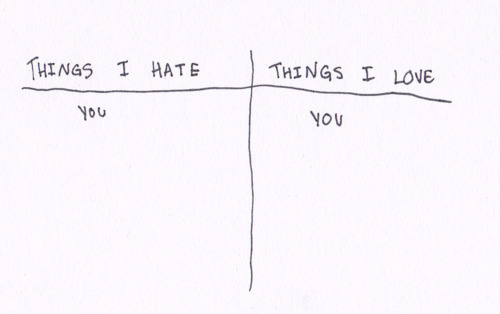 THINGS I HATE
YOU
THINGS I LOVE
YOU